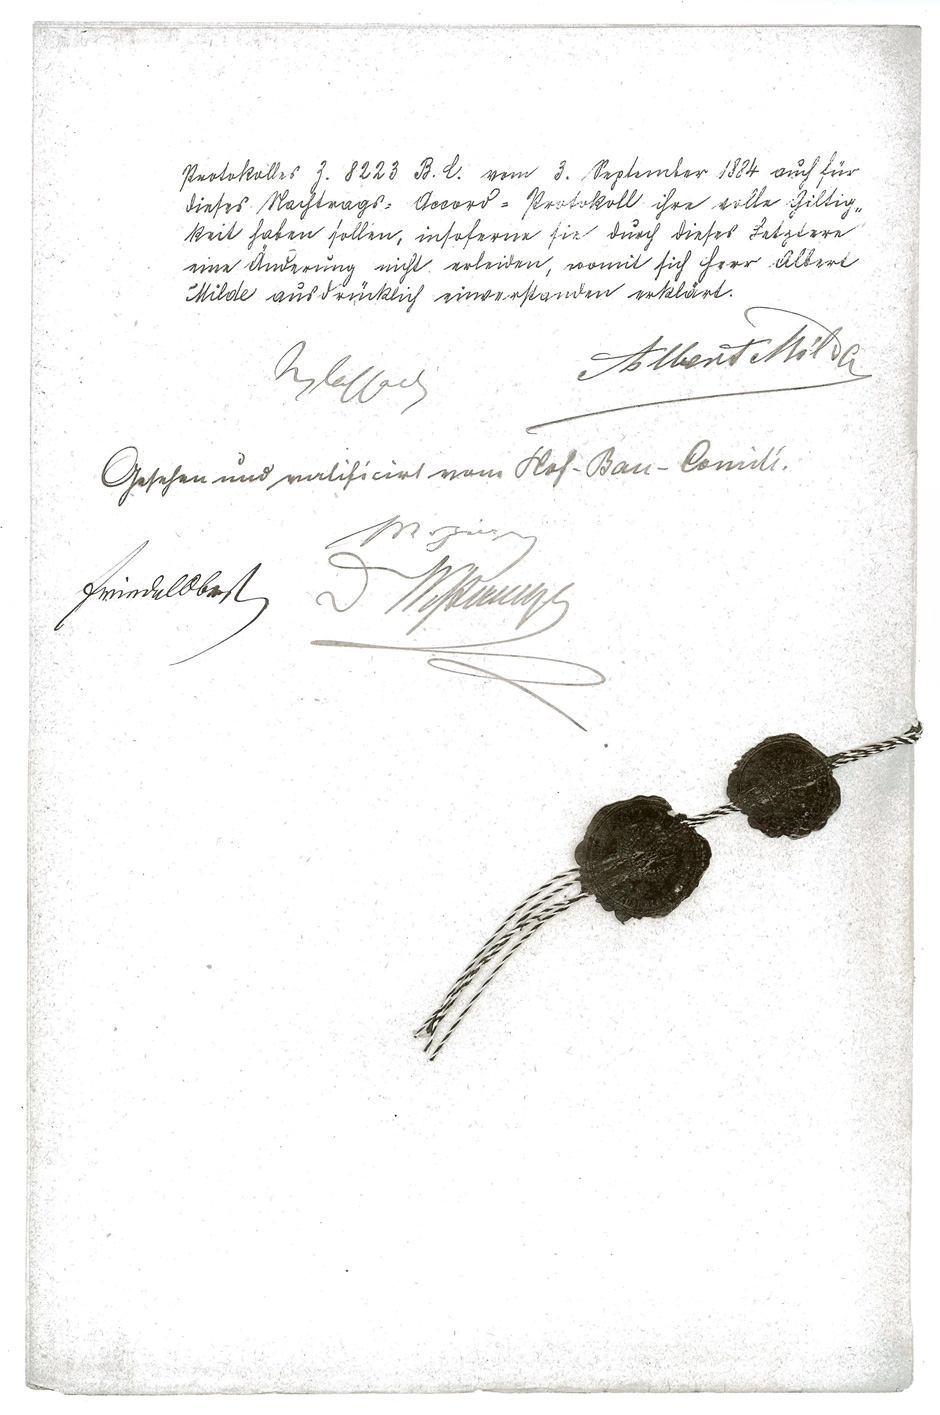 Protokolles Z. 8223 B. C. vom 3. September 1884 auch für
dieses Nachtrags= Accord= Protokoll ihre volle Giltig„
keit haben sollen, insoferne sie durch dieses Letztere
eine Änderung nicht erleiden, womit sich Herr Albert
Milde ausdrücklich einverstanden erklärt.
Albert Milde
Gesehen und ratificirt vom Hof-Bau-Comité.
Friedel Oberst